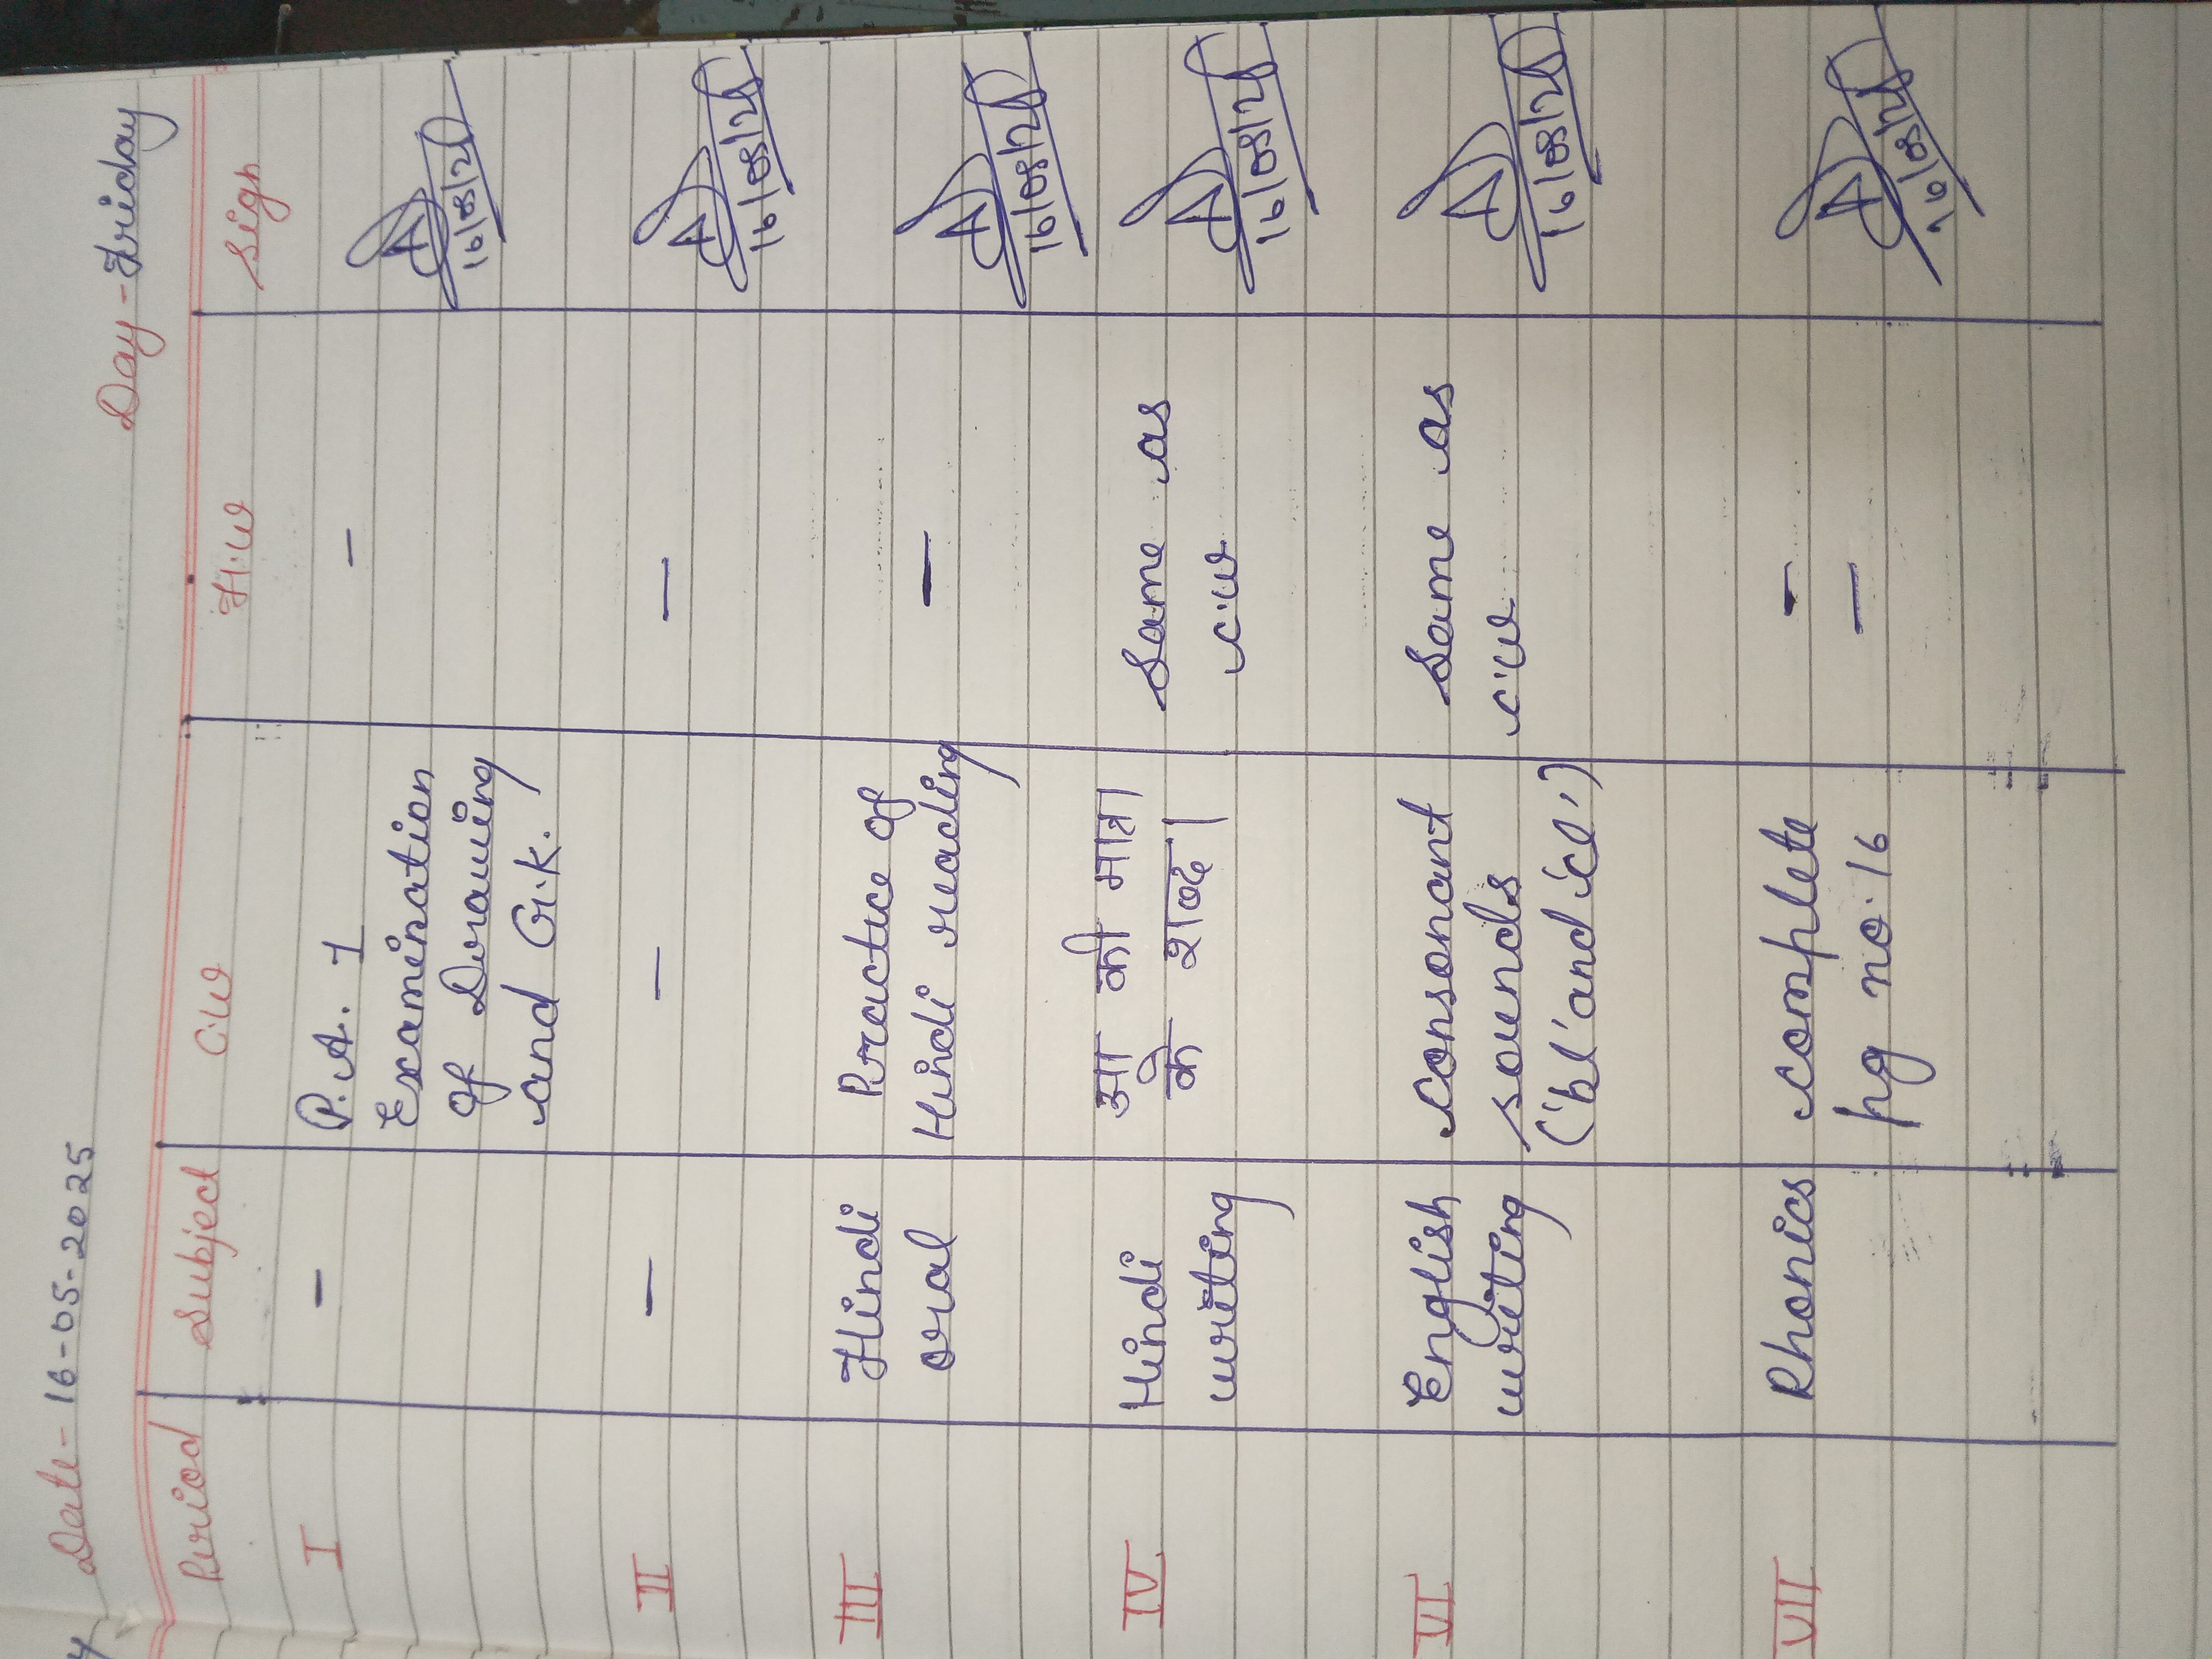 Date - 16-05-2025 Day - Friday
Period Subject C.W H.W Sign
I - P.A. 1 -
Examination
of Drawing
and G.K.
16/05/25
II - - -
16/05/25
III Hindi Practice of -
oral Hindi reading
16/05/25
IV Hindi आ की मात्रा Same as
writing के शब्द। C.W
16/05/25
VI English consonant Same as
writing sounds C.W
('bl' and 'cl')
16/05/25
VII Phonics complete -
pg no. 16 -
16/05/25